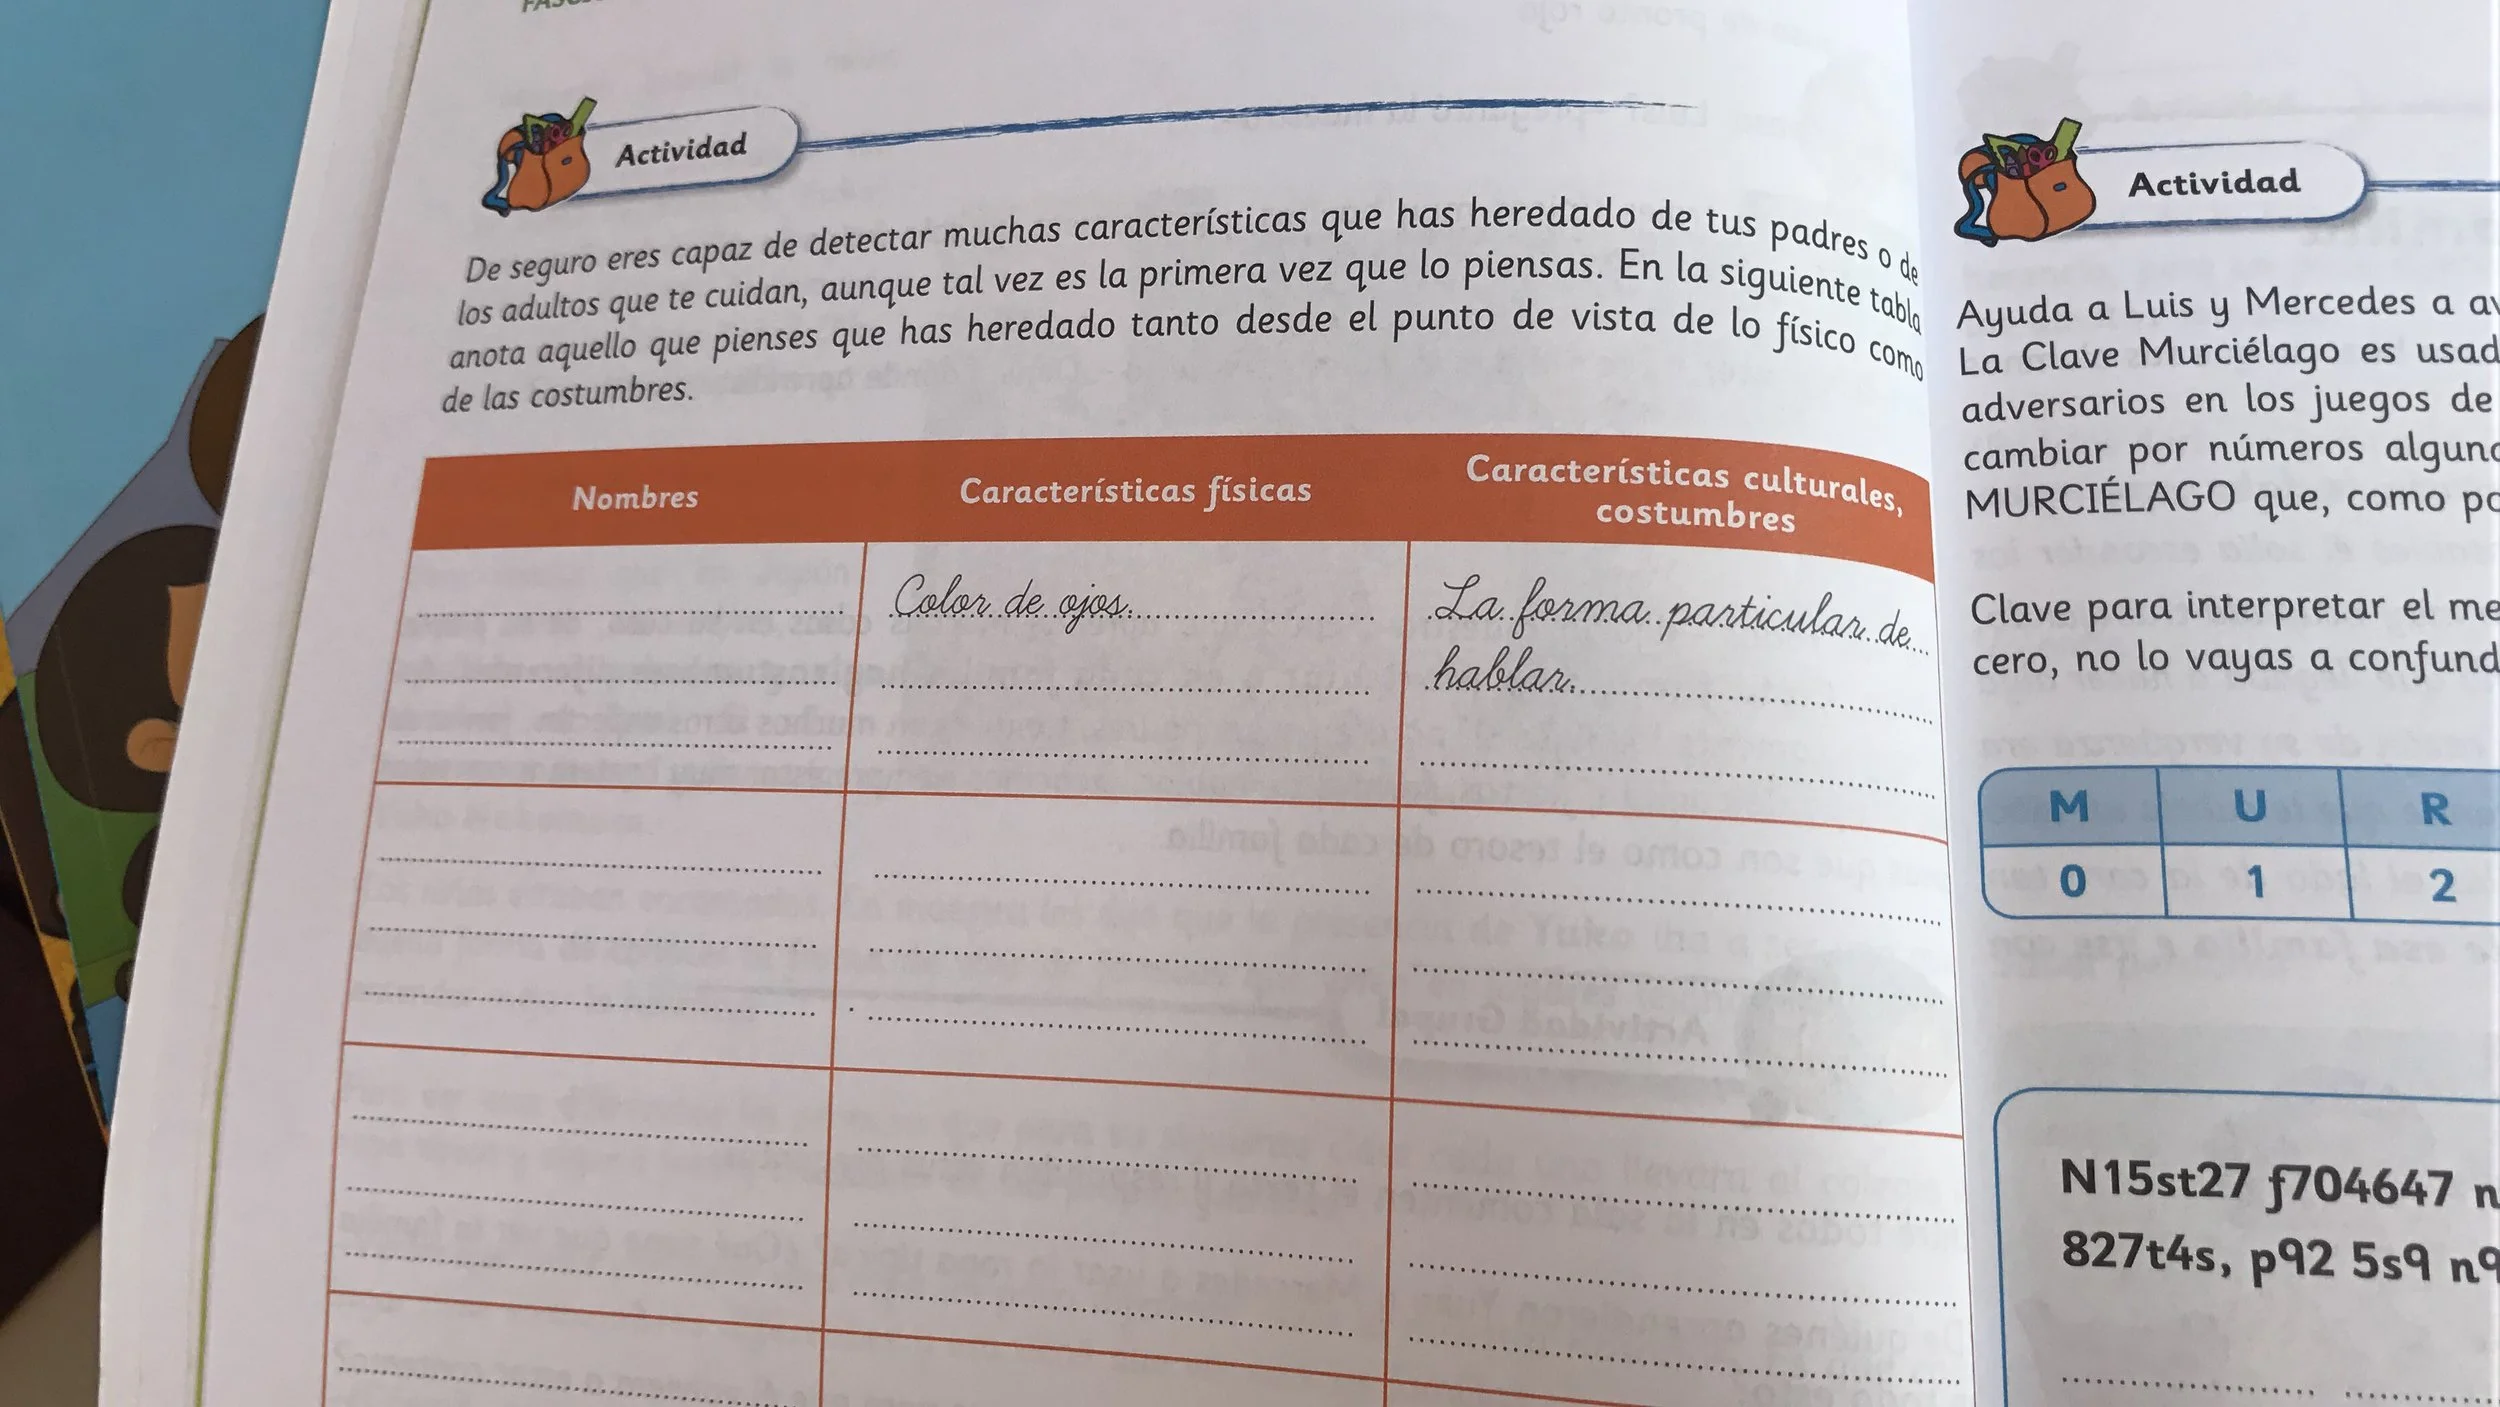 Actividad
De seguro eres capaz de detectar muchas características que has heredado de tus padres o de
los adultos que te cuidan, aunque tal vez es la primera vez que lo piensas. En la siguiente tabla
anota aquello que pienses que has heredado tanto desde el punto de vista de lo físico como
de las costumbres.
Nombres
Características físicas
Características culturales,
costumbres
Color de ojos.
La forma particular de
hablar.
Actividad
Ayuda a Luis y Mercedes a
La Clave Murciélago es
adversarios en los juegos de
cambiar por números
MURCIÉLAGO que, como
Clave para interpretar el
cero, no lo vayas a
M U R
0 1 2
N15st27 f704647
827t4s, p92 5s9